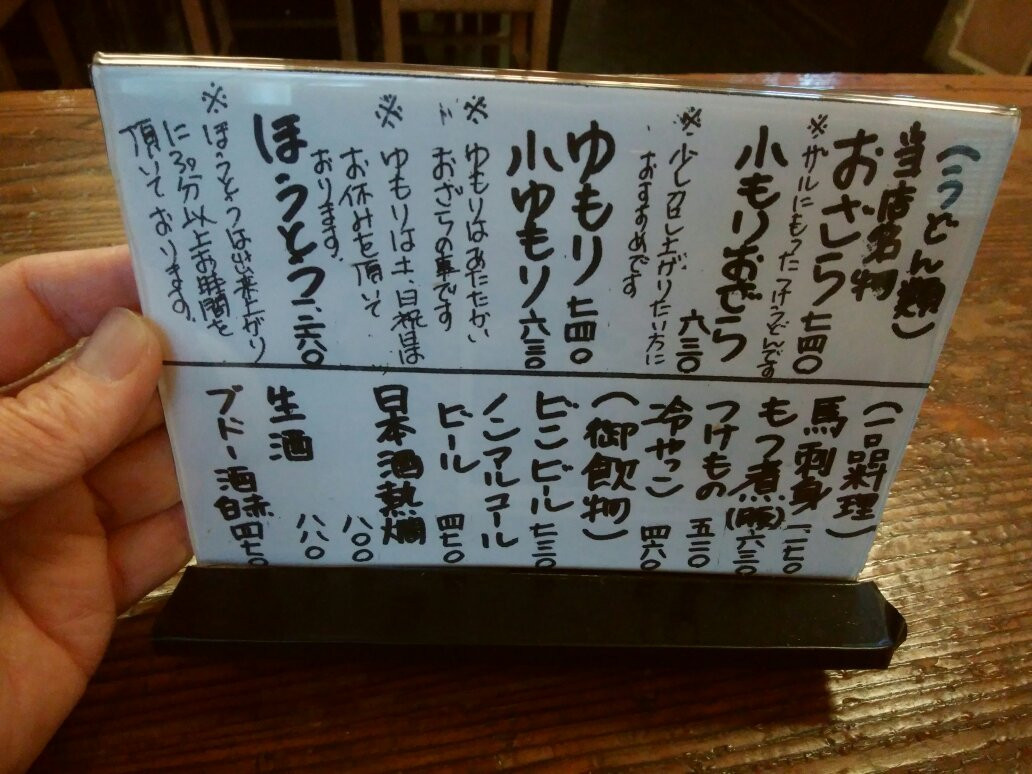 (うどん類)
当店名物
おざら 七四〇
※ザルにもったつけうどんです
小もりおざら 六三〇
※少し召し上がりたい方に
おすすめです
ゆもり 七四〇
小ゆもり 六三〇
※ゆもりはあたたかい
おざらの事です
※ゆもりは土、日祝は
お休みを頂いて
おります。
ほうとう 一、二六〇
※ほうとうは出来上がり
に30分以上お時間を
頂いております。
(一品料理)
馬刺身 一、一七〇
もつ煮(豚) 六三〇
つけもの 五三〇
冷やっこ 四六〇
(御飲物)
ビンビール 七三〇
ノンアルコール
ビール 四七〇
日本酒熱燗 八〇〇
生酒 八八〇
ブドー酒 赤白 四七〇